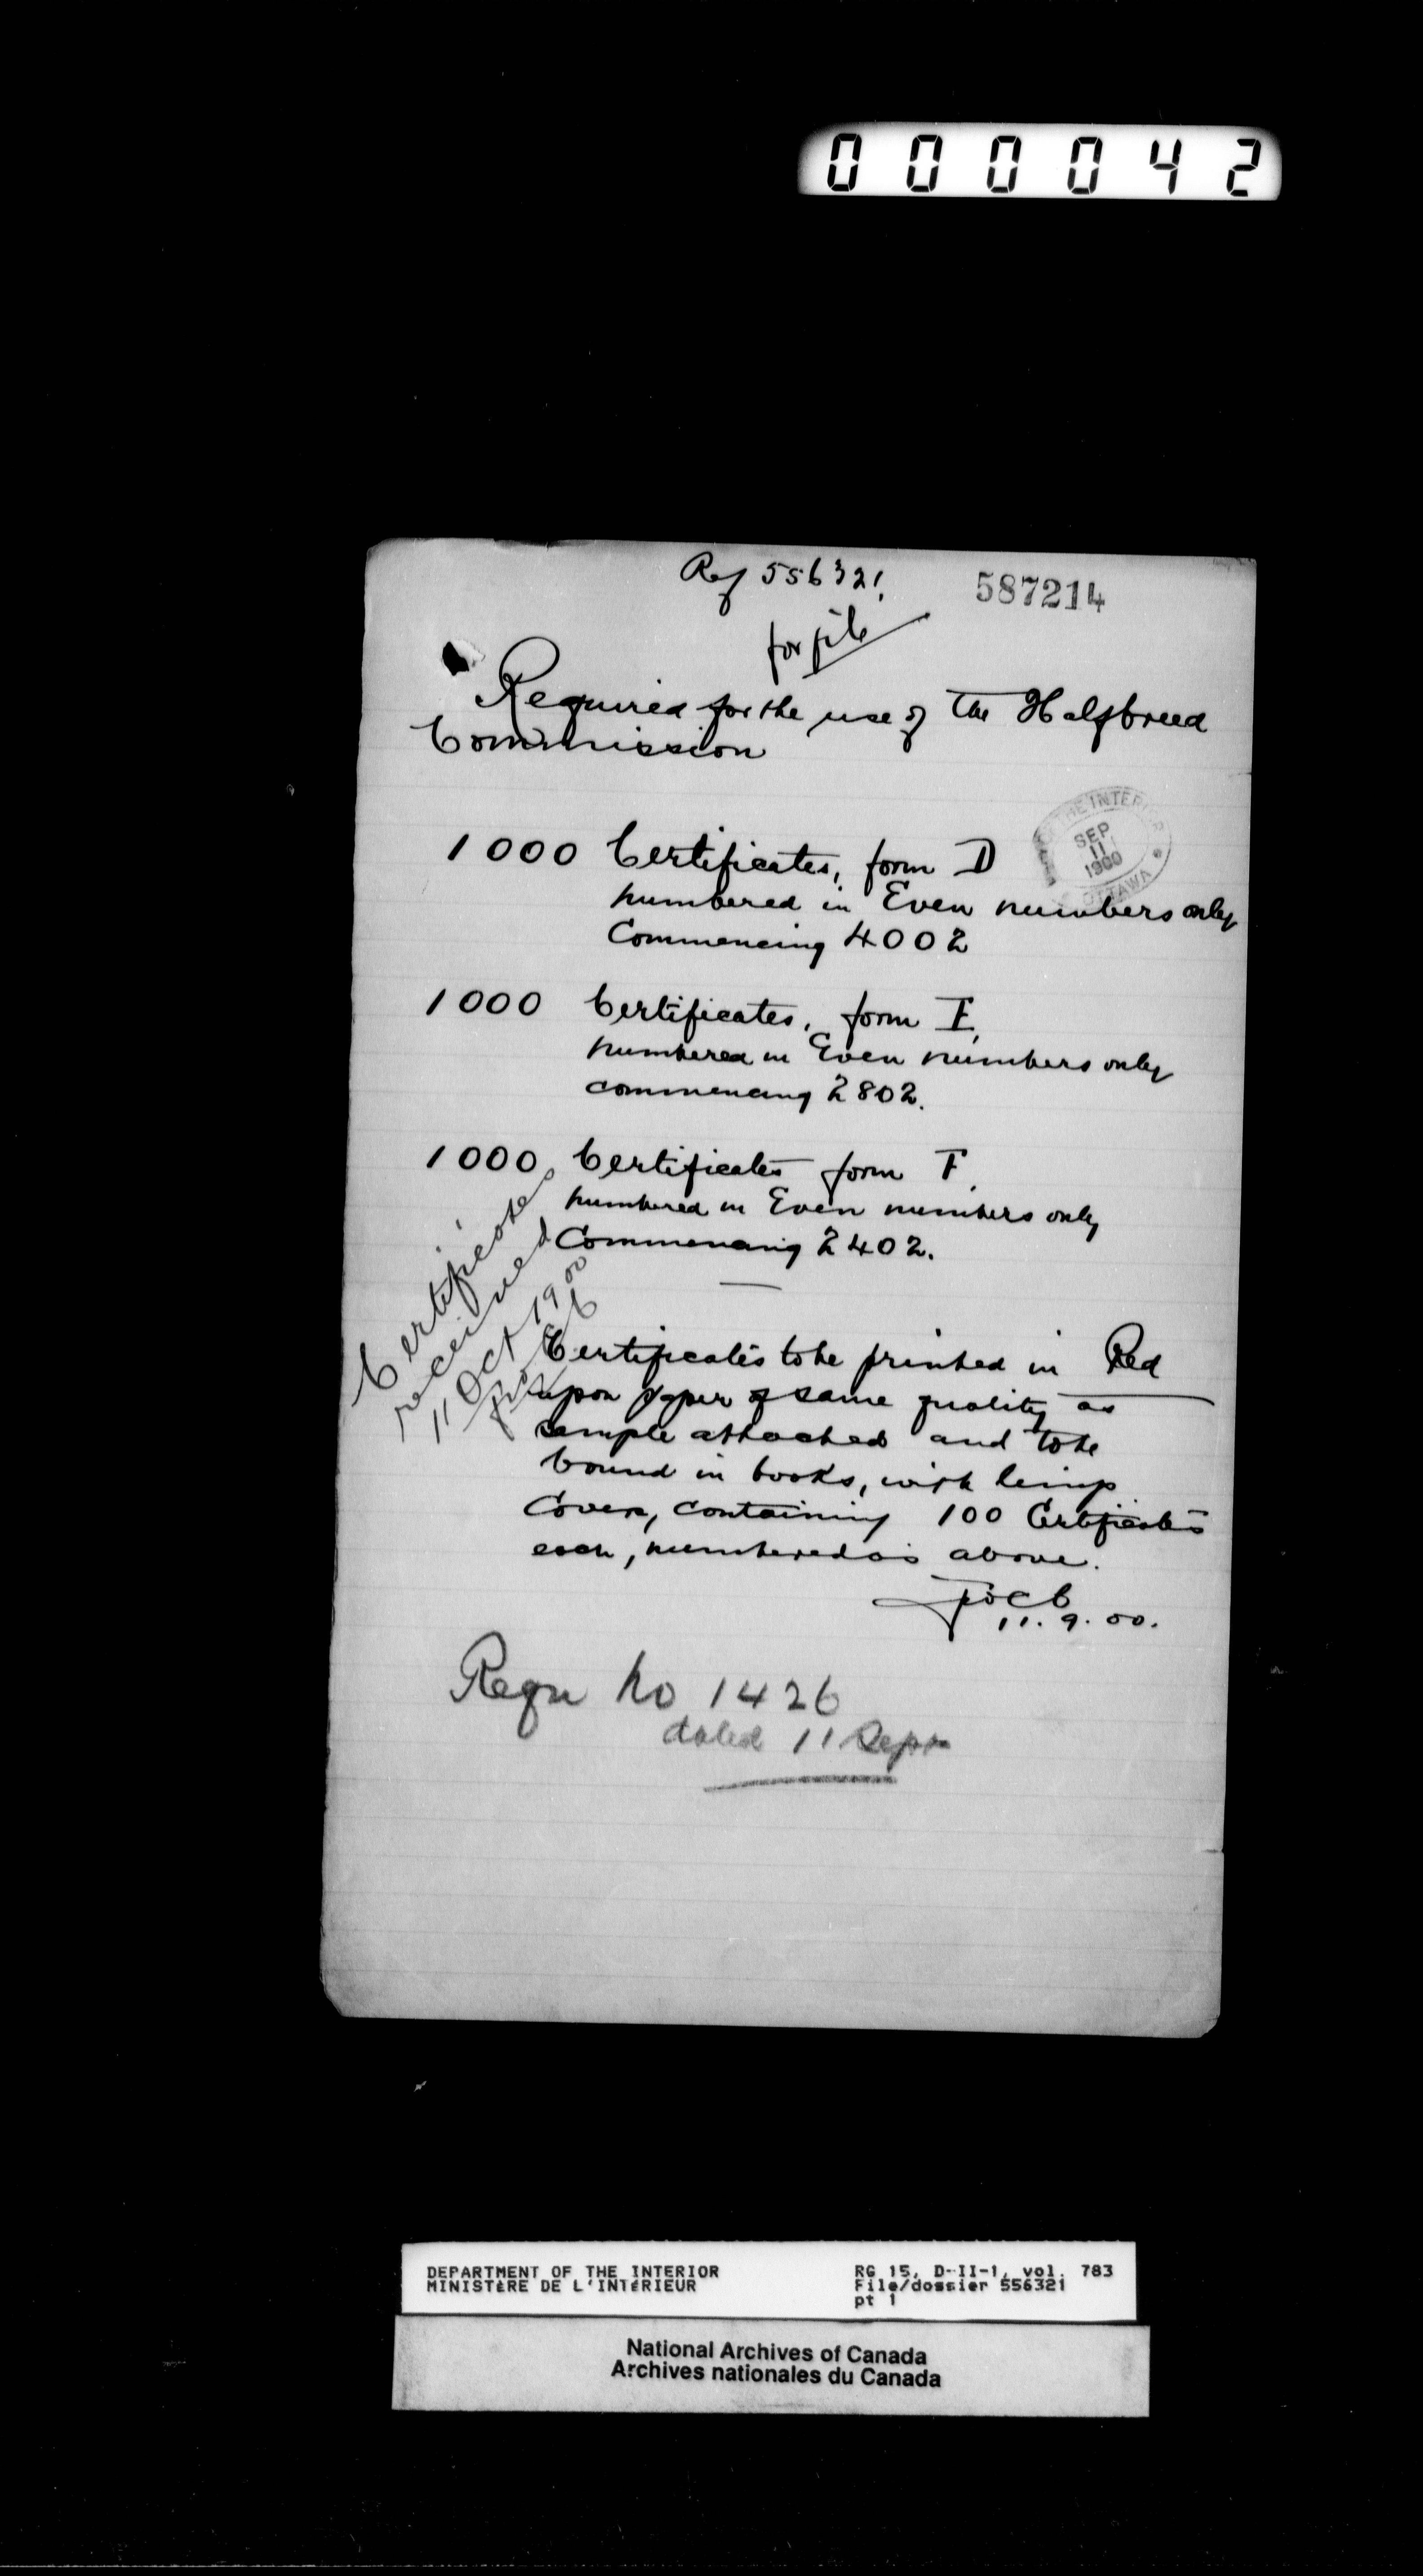 000042
Ref 556321
587214
for file
Required for the use of the Halfbreed
Commission
THE INTERIOR
SEP
11
1900
OTTAWA
1000 Certificates, form D
numbered in Even numbers only
Commencing 4002
1000 Certificates, form E,
numbered in Even numbers only
commencing 2802.
1000 Certificates form F,
numbered in Even numbers only
Commencing 2402.
Certificates
received
11 Oct 1900
Certificates to be printed in Red
upon paper of same quality as
sample attached and to be
bound in books, with limp
Covers, containing 100 Certificates
each, numbered as above.
11.9.00.
Reqn No 1426
dated 11 Sept
DEPARTMENT OF THE INTERIOR
MINISTÈRE DE L'INTÉRIEUR
RG 15, D-II-1, vol. 783
File/dossier 556321
pt 1
National Archives of Canada
Archives nationales du Canada